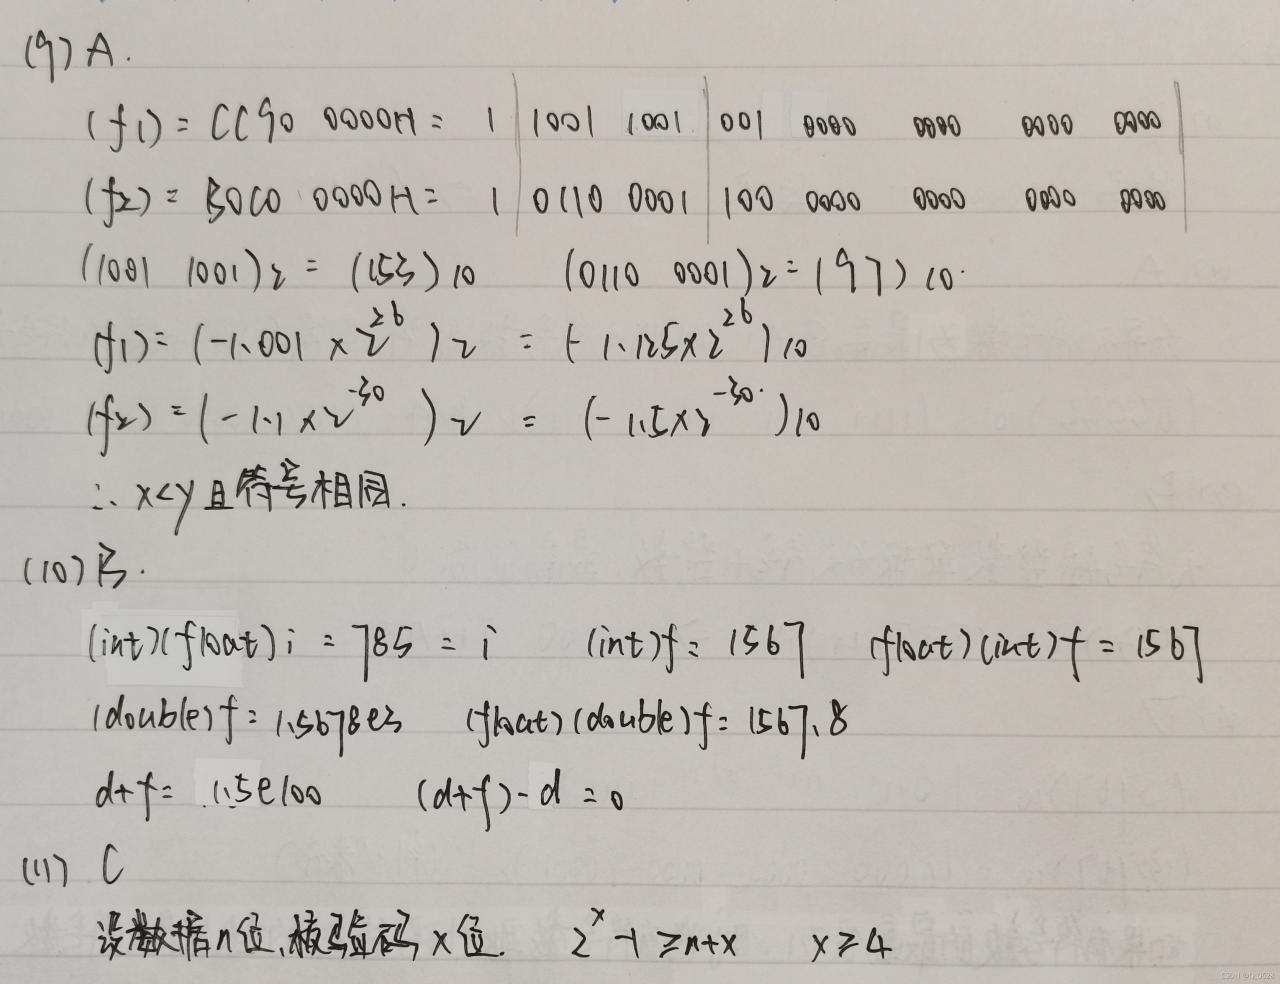 (9) A.
(f1) = CC90 0000H = 1 | 1001 1001 | 001 0000 0000 0000 0000 |
(f2) = B0C0 0000H = 1 | 0110 0001 | 100 0000 0000 0000 0000 |
(1001 1001)₂ = (153)10 (0110 0001)₂ = (97)10.
(f1) = (-1.001 × 2^26)₂ = (-1.125×2^26)10
(f2) = (-1.1 × 2^-30)₂ = (-1.5×2^-30)10
∴ x<y 且符号相同.
(10) B.
(int)(float)i = 785 = i (int)f = 1567 (float)(int)f = 1567
(double)f = 1.5678e3 (float)(double)f = 1567.8
d+f = 1.5e100 (d+f)-d = 0
(11) C
设数据n位,校验码x位. 2^x -1 ≥ n+x x ≥ 4